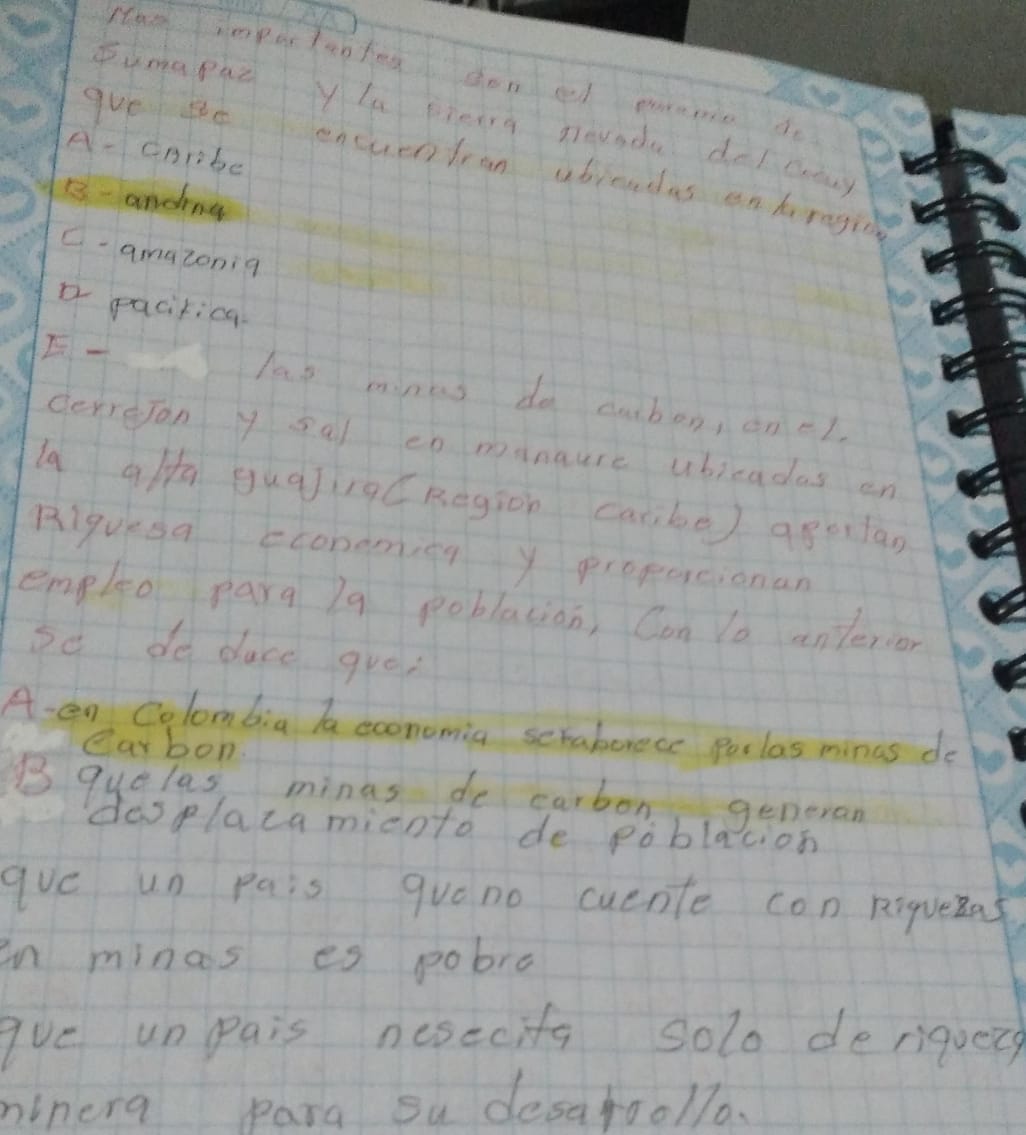 Mas importantes son el paramo de
Sumapaz y la sierra nevada del cocuy
que se encuentran ubicadas en la region
A- caribe
B- andina
C- amazonia
D- pacifica.
E- las minas de carbon, en el.
cerrejon y sal en manaure ubicadas en
la alta guajira (Region caribe) aportan
Riquesa economica y proporcionan
empleo para la poblacion, Con lo anterior
se de duce que:
A-en Colombia la economia se faborece por las minas de
Carbon.
B que las minas de carbon generan
desplazamiento de poblacion
que un pais que no cuente con Riquezas
en minas es pobre
que un pais nesecita solo de riqueza
minera para su desarrollo.